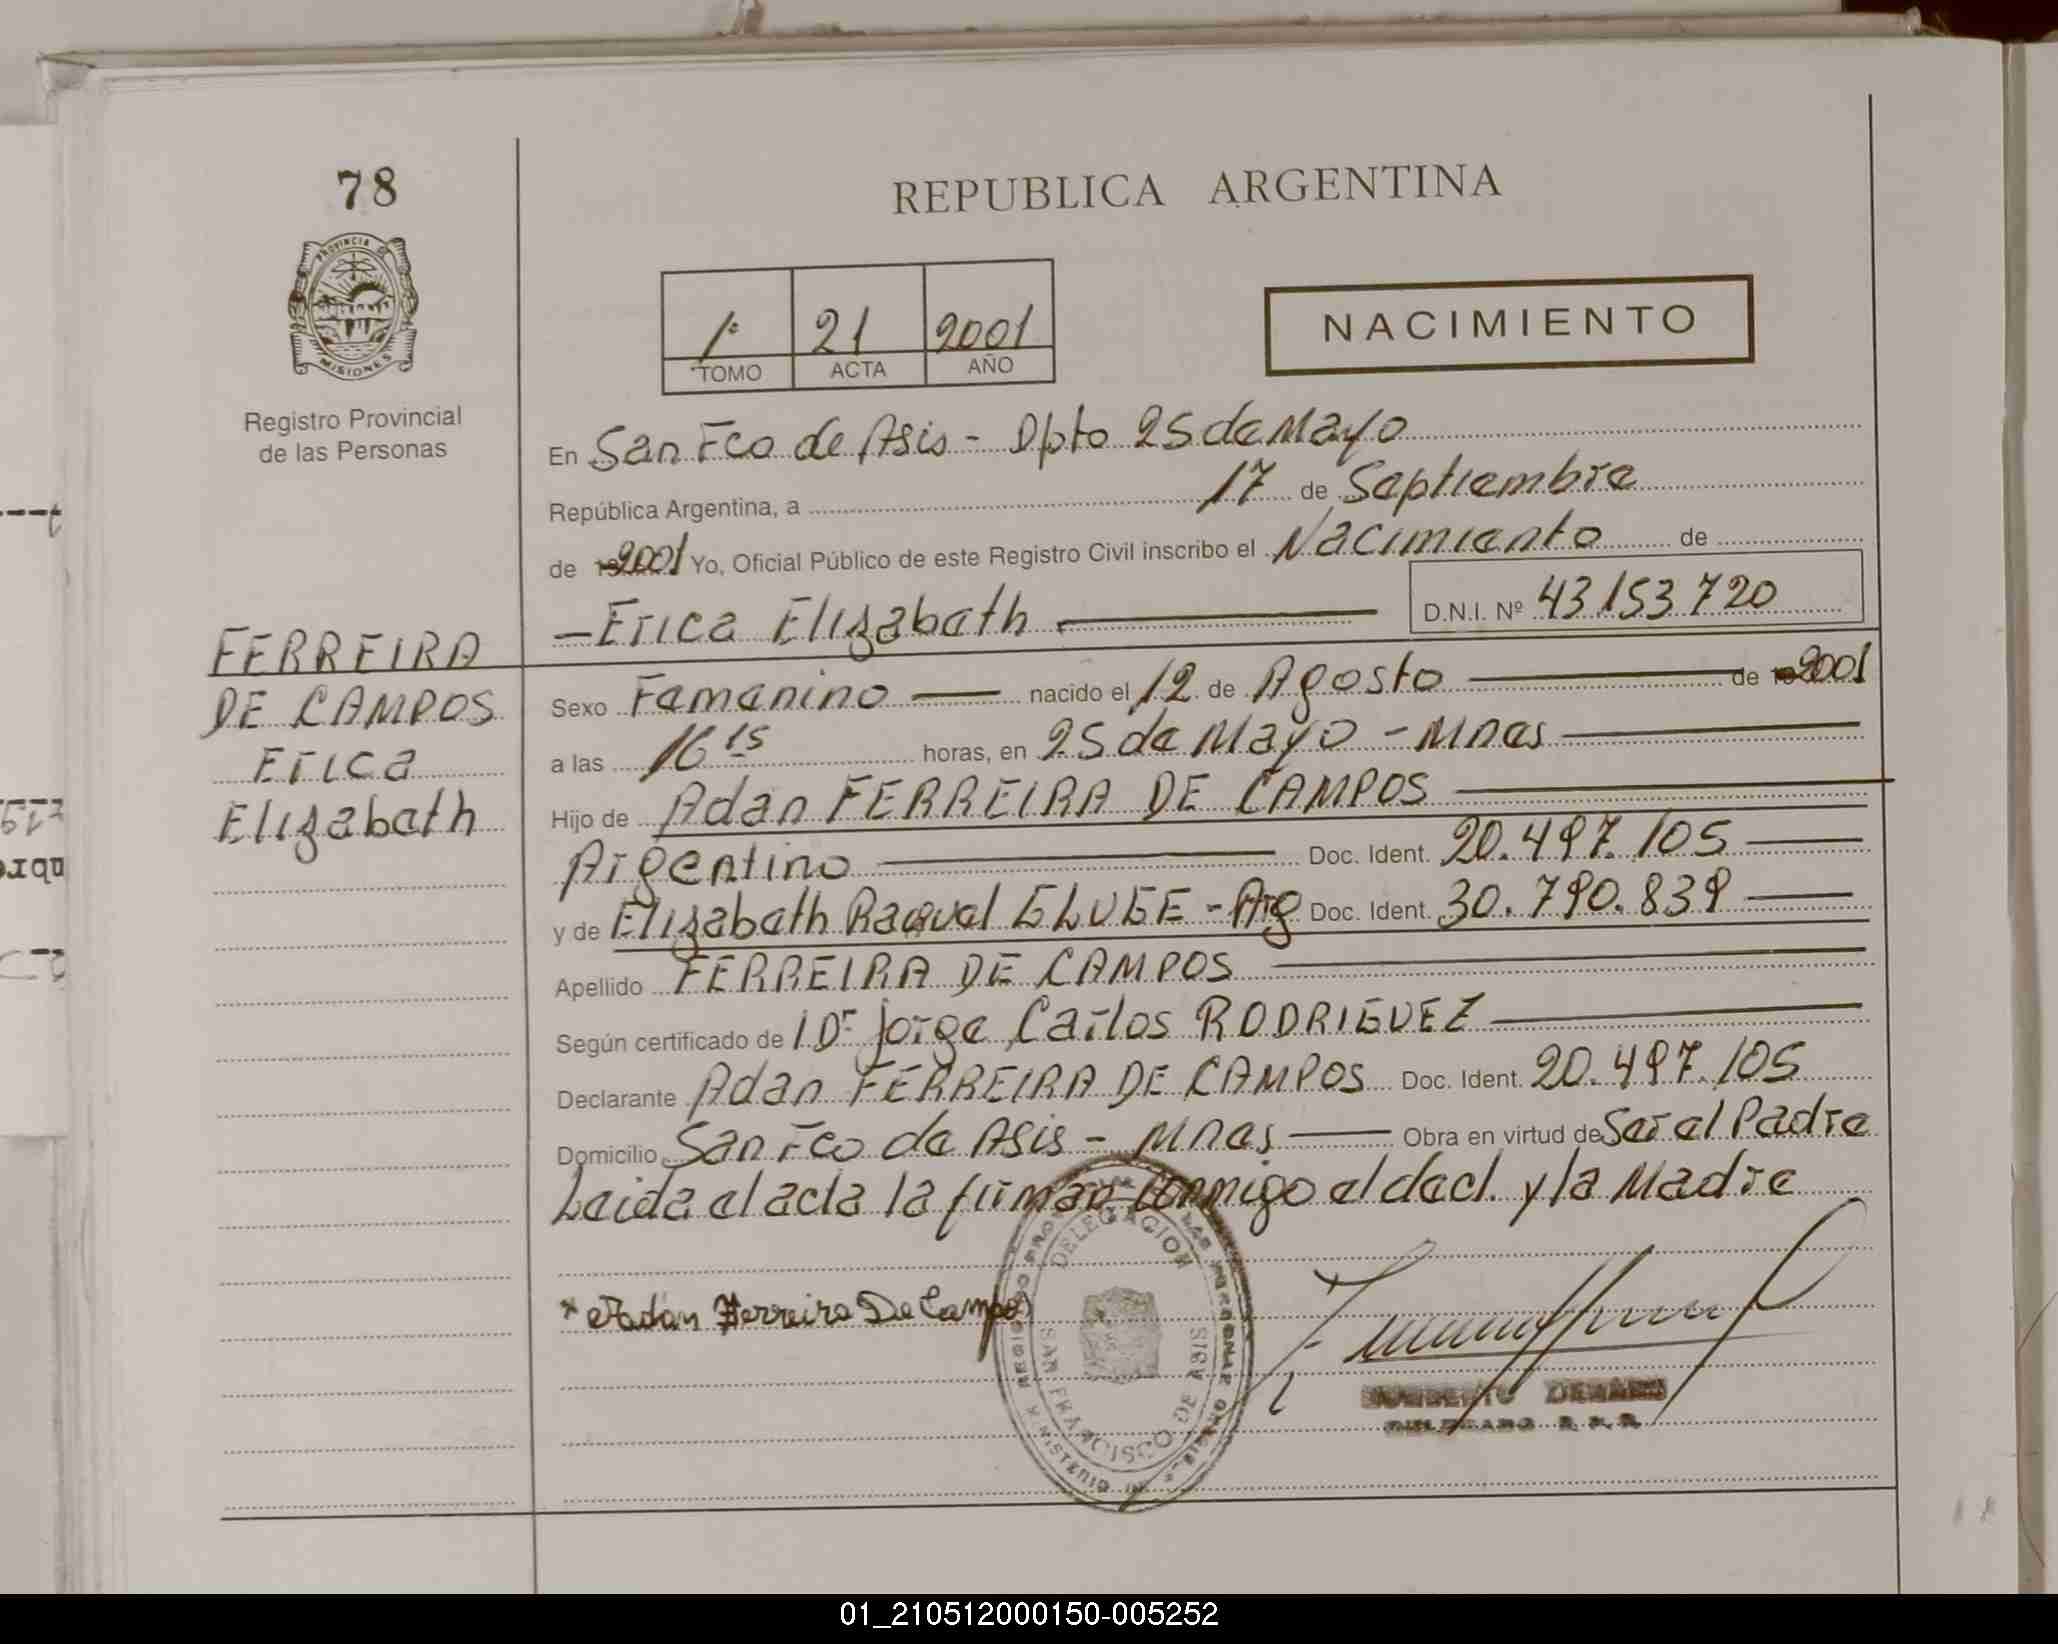 78
REPUBLICA ARGENTINA
PROVINCIA DE
MISIONES
Registro Provincial
de las Personas
1º 21 2001
TOMO ACTA AÑO
NACIMIENTO
En San Fco de Asis - Dpto 25 de Mayo
República Argentina, a 17 de Septiembre
de 2001 Yo, Oficial Público de este Registro Civil inscribo el Nacimiento de
- Erica Elizabeth D.N.I. Nº 43153720
FERREIRA
DE CAMPOS
Erica
Elizabeth
Sexo Femenino nacido el 12 de Agosto de 2001
a las 16 15 horas, en 25 de Mayo - Mnes
Hijo de Adan FERREIRA DE CAMPOS
Argentino Doc. Ident. 20.497.105
y de Elizabeth Raquel GLUGE - Arg Doc. Ident. 30.790.839
Apellido FERREIRA DE CAMPOS
Según certificado de Dr Jorge Carlos RODRIGUEZ
Declarante Adan FERREIRA DE CAMPOS Doc. Ident. 20.497.105
Domicilio San Fco de Asis - Mnes Obra en virtud de Ser el Padre
Leida el acta la firman conmigo el decl. y la Madre
DELEGACION
SAN FRANCISCO DE ASIS
x Adan Ferreira De Campos
01_210512000150-005252